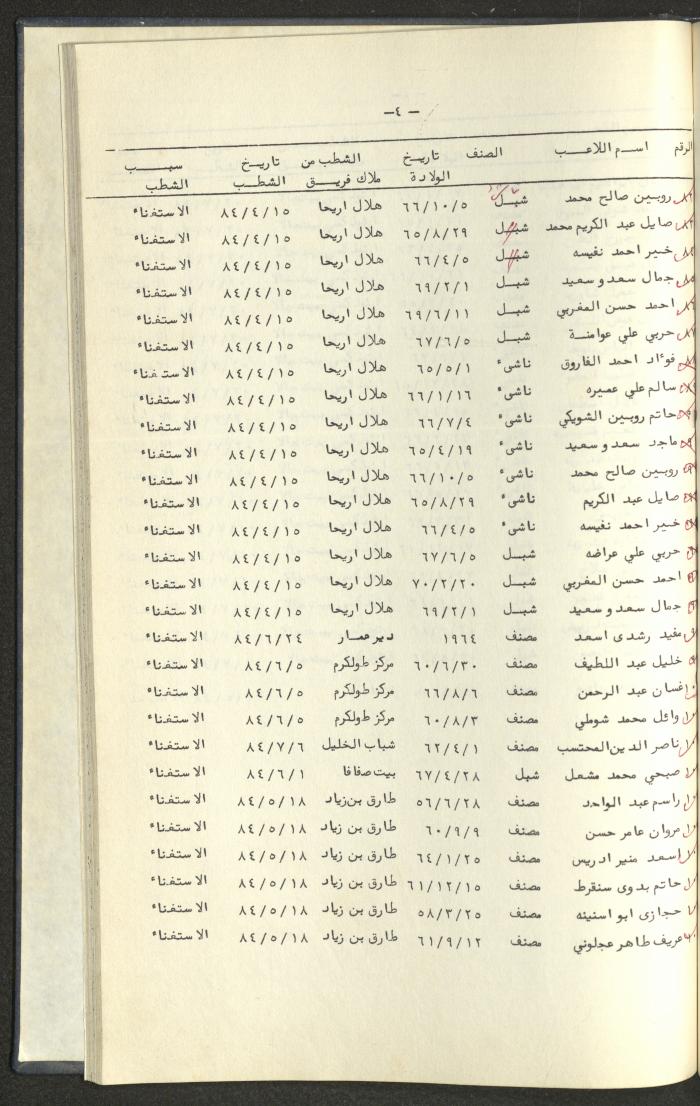 — ٤ —
الرقم اسم اللاعب الصنف تاريخ الولادة الشطب من ملاك فريق تاريخ الشطب سبب الشطب
روبين صالح محمد شبل ٦٦/١٠/٥ هلال اريحا ٨٤/٤/١٥ الاستغناء
صايل عبد الكريم محمد شبل ٦٥/٨/٢٩ هلال اريحا ٨٤/٤/١٥ الاستغناء
خبير احمد نغيسه شبل ٦٦/٤/٥ هلال اريحا ٨٤/٤/١٥ الاستغناء
جمال سعد وسعيد شبل ٦٩/٢/١ هلال اريحا ٨٤/٤/١٥ الاستغناء
احمد حسن المغربي شبل ٦٩/٦/١١ هلال اريحا ٨٤/٤/١٥ الاستغناء
حربي علي عوامنة شبل ٦٧/٦/٥ هلال اريحا ٨٤/٤/١٥ الاستغناء
فوءاد احمد الفاروق ناشىء ٦٥/٥/١ هلال اريحا ٨٤/٤/١٥ الاستغناء
سالم علي عميره ناشىء ٦٦/١/١٦ هلال اريحا ٨٤/٤/١٥ الاستغناء
حاتم روبين الشويكي ناشىء ٦٦/٧/٤ هلال اريحا ٨٤/٤/١٥ الاستغناء
ماجد سعد وسعيد ناشىء ٦٥/٤/١٩ هلال اريحا ٨٤/٤/١٥ الاستغناء
روبين صالح محمد ناشىء ٦٦/١٠/٥ هلال اريحا ٨٤/٤/١٥ الاستغناء
صايل عبد الكريم ناشىء ٦٥/٨/٢٩ هلال اريحا ٨٤/٤/١٥ الاستغناء
خبير احمد نغيسه ناشىء ٦٦/٤/٥ هلال اريحا ٨٤/٤/١٥ الاستغناء
حربي علي عراضه شبل ٦٧/٦/٥ هلال اريحا ٨٤/٤/١٥ الاستغناء
احمد حسن المغربي شبل ٧٠/٢/٢٠ هلال اريحا ٨٤/٤/١٥ الاستغناء
جمال سعد وسعيد شبل ٦٩/٢/١ هلال اريحا ٨٤/٤/١٥ الاستغناء
مفيد رشدى اسعد مصنف ١٩٦٤ ديرعمار ٨٤/٦/٢٤ الاستغناء
خليل عبد اللطيف مصنف ٦٠/٦/٣٠ مركز طولكرم ٨٤/٦/٥ الاستغناء
غسان عبد الرحمن مصنف ٦٦/٨/٦ مركز طولكرم ٨٤/٦/٥ الاستغناء
وائل محمد شوطي مصنف ٦٠/٨/٣ مركز طولكرم ٨٤/٦/٥ الاستغناء
ناصر الدين المحتسب مصنف ٦٢/٤/١ شباب الخليل ٨٤/٧/٦ الاستغناء
صبحي محمد مشعل شبل ٦٧/٤/٢٨ بيت صفافا ٨٤/٦/١ الاستغناء
راسم عبد الواحد مصنف ٥٦/٦/٢٨ طارق بن زياد ٨٤/٥/١٨ الاستغناء
مروان عامر حسن مصنف ٦٠/٩/٩ طارق بن زياد ٨٤/٥/١٨ الاستغناء
اسعد منير ادريس مصنف ٦٤/١/٢٥ طارق بن زياد ٨٤/٥/١٨ الاستغناء
حاتم بدوى سنقرط مصنف ٦١/١٢/١٥ طارق بن زياد ٨٤/٥/١٨ الاستغناء
حجازى ابو اسنينه مصنف ٥٨/٣/٢٥ طارق بن زياد ٨٤/٥/١٨ الاستغناء
عريف طاهر عجلوني مصنف ٦١/٩/١٢ طارق بن زياد ٨٤/٥/١٨ الاستغناء